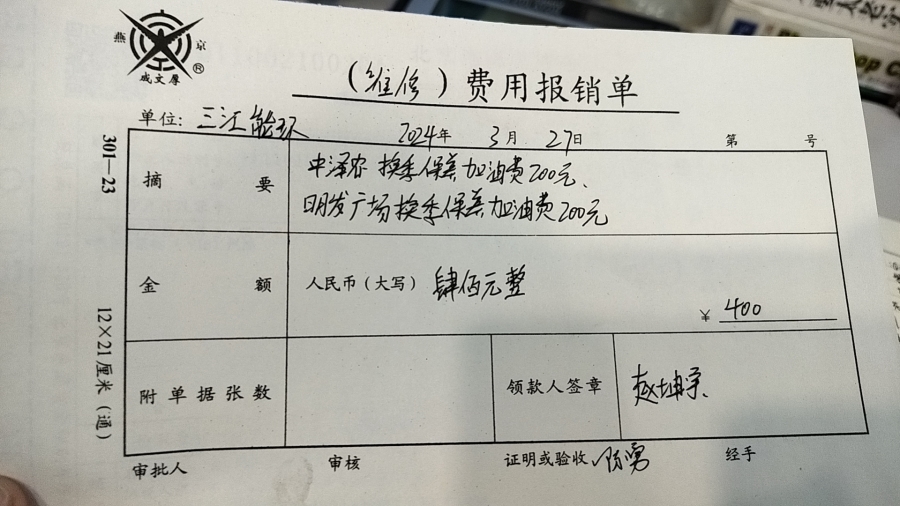 燕 京
成文厚®
(维修)费用报销单
单位: 三江能环 2024年 3月 27日 第 号
301—23
摘 要
中泽农 换季保养加油费200元、
明发广场换季保养加油费200元
金 额
人民币(大写) 肆佰元整
¥ 400
12×21厘米(通)
附单据张数
领款人签章
赵坤
审批人 审核 证明或验收 陈勇 经手